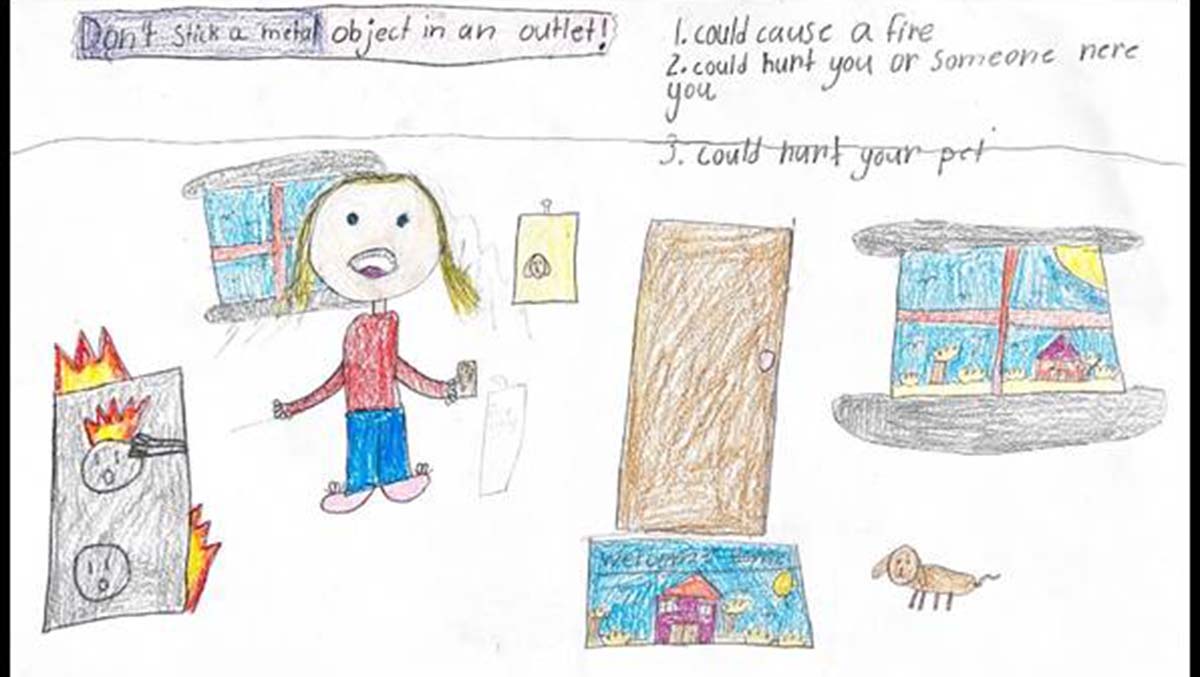 Don't stick a metal object in an outlet!
1. could cause a fire
2. could hurt you or someone nere
you
3. could hurt your pet
Welcome Home